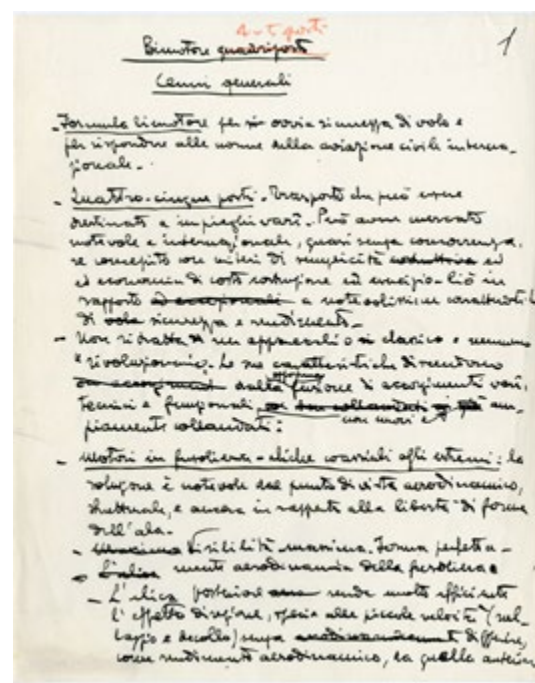 4-5 posti
1
Bimotore quadriposto
Cenni generali
- Formula bimotore per ovvia sicurezza di volo e
per rispondere alle norme sulla aviazione civile interna-
zionale. -
- Quattro-cinque posti - Trasporto che può essere
destinato a impieghi varî. Può avere mercato
notevole e internazionale, quasi senza concorrenza,
se concepito con criteri di semplicità ed
ed economia di costo costruzione ed esercizio - Ciò in
rapporto a notevolissime caratteristi
di sicurezza e rendimento. -
- Non si tratta di un apparecchio classico e nemmeno
"rivoluzionario". Le sue caratteristiche discendono
dalla fusione di accorgimenti varî,
tecnici e funzionali, non nuovi e am-
piamente collaudati:
- Motori in fusoliera - eliche coassiali agli estremi: la
soluzione è notevole dal punto di vista aerodinamico,
strutturale, e ancora in rapporto alla libertà di forma
dell'ala. -
- Visibilità massima. Forma perfetta -
mente aerodinamica della fusoliera
- L'elica posteriore rende molto efficiente
l'effetto di reazione, specie alle piccole velocità (rul-
laggio e decollo) senza differire,
come rendimento aerodinamico, da quella anterior